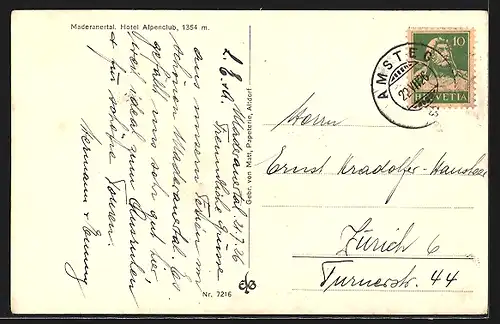 Maderanertal. Hotel Alpenclub, 1354 m.
L. E. & A. Maderanertal 21.7.26
Freundliche Grüsse
aus unsern Ferien im
schönen Maderanertal. Es
gefällt uns sehr gut hier,
ideal zum Ausruhen
& für schöne Touren.
Hermann & Emmy
Gebr. von Matt, Papeterie, Altdorf
Nr. 7216
AMSTEG
10
HELVETIA
Herrn
Ernst Kradolfer-Hansheer
Zürich 6
Turnerstr. 44